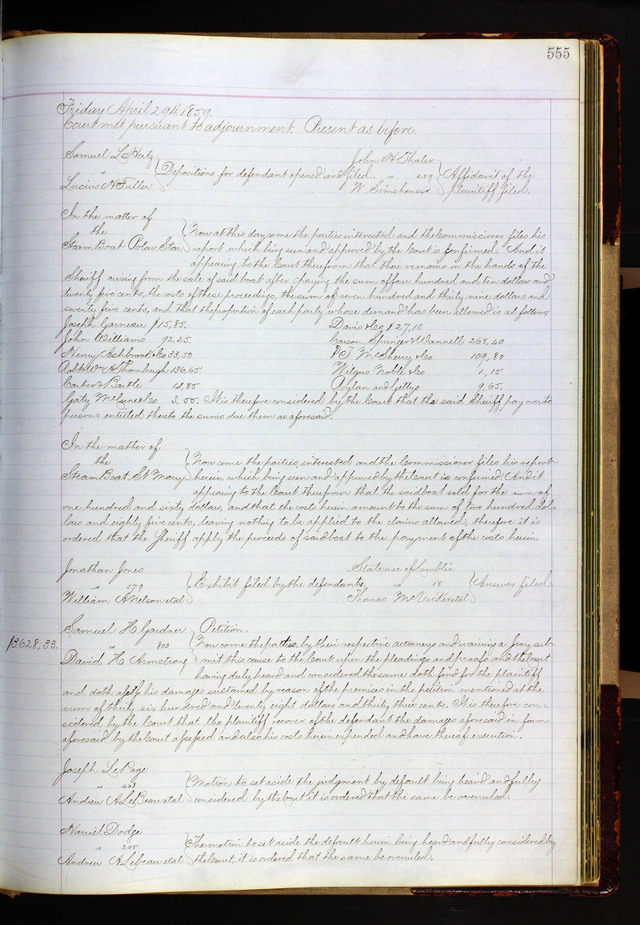 555
Friday April 29th 1859
Court met pursuant to adjournment. Present as before.
Samuel L. John H. Thaler
" Depositions for defendant opened and filed. " 289 Affidavit of the
Lucius H Fuller W. plaintiff filed.
In the matter of
the Now at this day come the parties interested and the Commissioner files his
Steam Boat Polar Star report which being seen and approved by the Court is confirmed. And it
appearing to the Court therefrom that there remains in the hands of the
Sheriff arising from the sale of said boat after paying the sum of four hundred and ten dollars and
twenty five cents, the costs of these proceedings, the sum of seven hundred and thirty nine dollars and
seventy five cents, and that the proportion of each party whose demand has been allowed is as follows
Joseph Garneau $15,85. Davis & Co 127,10
John Williams 92.25. Carson 268,40
Henry Ashbrook & Co 33,50 P & J McSherry & Co 109,80
Thornburgh 136,65 Wilgus Noble & Co 1,15
Carter & 41,85 Boylan and 9.65.
Gaty McCune & Co 3,55. It is therefore considered by the Court that the said Sheriff pay over to
persons entitled thereto the sums due them as aforesaid.
In the matter of
the Now come the parties interested and the Commissioner files his report
Steam Boat St Mary herein which being seen and approved by the Court is confirmed. And it
appearing to the Court therefrom that the said boat sold for the sum of
one hundred and sixty dollars, and that the costs herein amount to the sum of two hundred dol-
lars and eighty five cents, leaving nothing to be applied to the claims allowed, therefore it is
ordered that the Sheriff apply the proceeds of said boat to the payment of the costs herein.
Jonathan Jones State use of
" 579 Exhibit filed by the defendants, " 18 Answer filed
William A Nelson et al Thomas et al
Samuel H. Gardner Petition.
$3628,33. " 803 Now come the parties by their respective attorneys and waiving a jury sub-
David H. Armstrong mit this cause to the Court upon the pleadings and proofs and the Court
having duly heard and considered the same doth find for the plaintiff
and doth assess his damages sustained by reason of the premises in the petition mentioned at the
sum of thirty six hundred and twenty eight dollars and thirty three cents. It is therefore con-
sidered by the Court that the plaintiff recover of the defendant the damages aforesaid in form
aforesaid by the Court assessed and also his costs herein expended and have thereof execution.
Joseph LePage
" Motion to set aside the judgment by default being heard and fully
Andrew A LeBeau et al considered by the Court it is ordered that the same be overruled.
Dodge
" The motion to set aside the default herein being heard and fully considered by
Andrew A Lebeau et al the Court, it is ordered that the same be overruled.